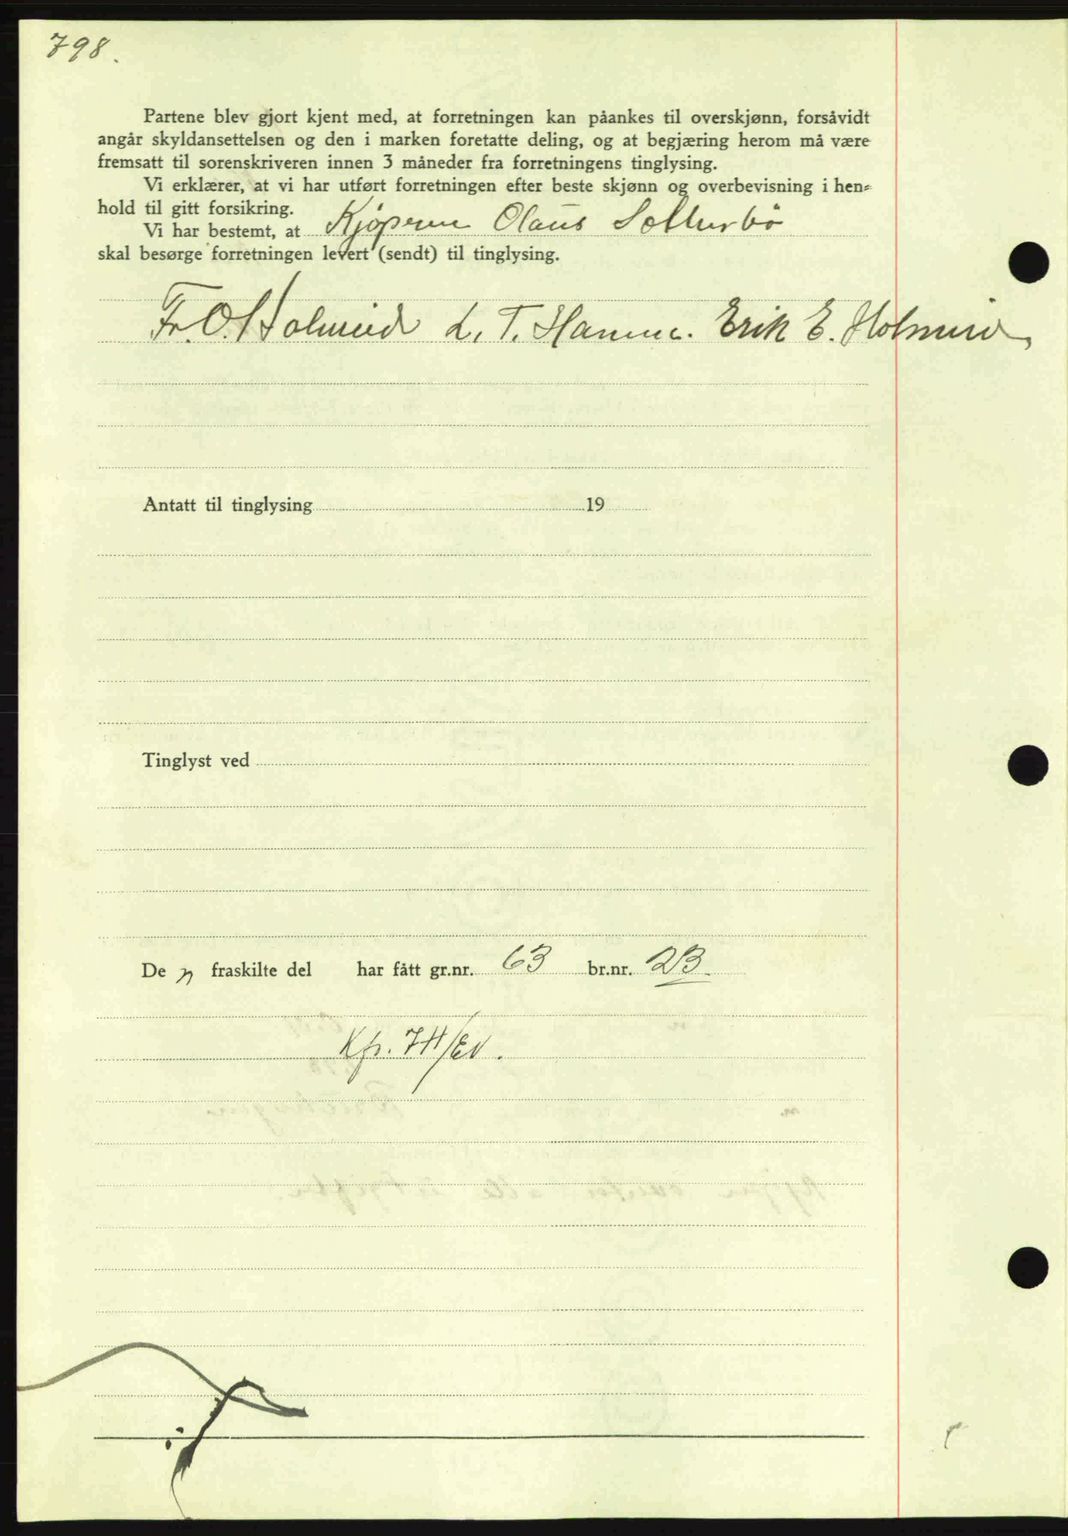 798.
Partene blev gjort kjent med, at forretningen kan påankes til overskjønn, forsåvidt
angår skyldansettelsen og den i marken foretatte deling, og at begjæring herom må være
fremsatt til sorenskriveren innen 3 måneder fra forretningens tinglysing.
Vi erklærer, at vi har utført forretningen efter beste skjønn og overbevisning i hen-
hold til gitt forsikring.
Vi har bestemt, at Kjøperen Olaus
skal besørge forretningen levert (sendt) til tinglysing.
Fr. O. Holmeide L. T. Hamre. Erik E. Holmeide
Antatt til tinglysing 19
Tinglyst ved
De n fraskilte del har fått gr.nr. 63 br.nr. 23.
Kfr. 7H/EN.